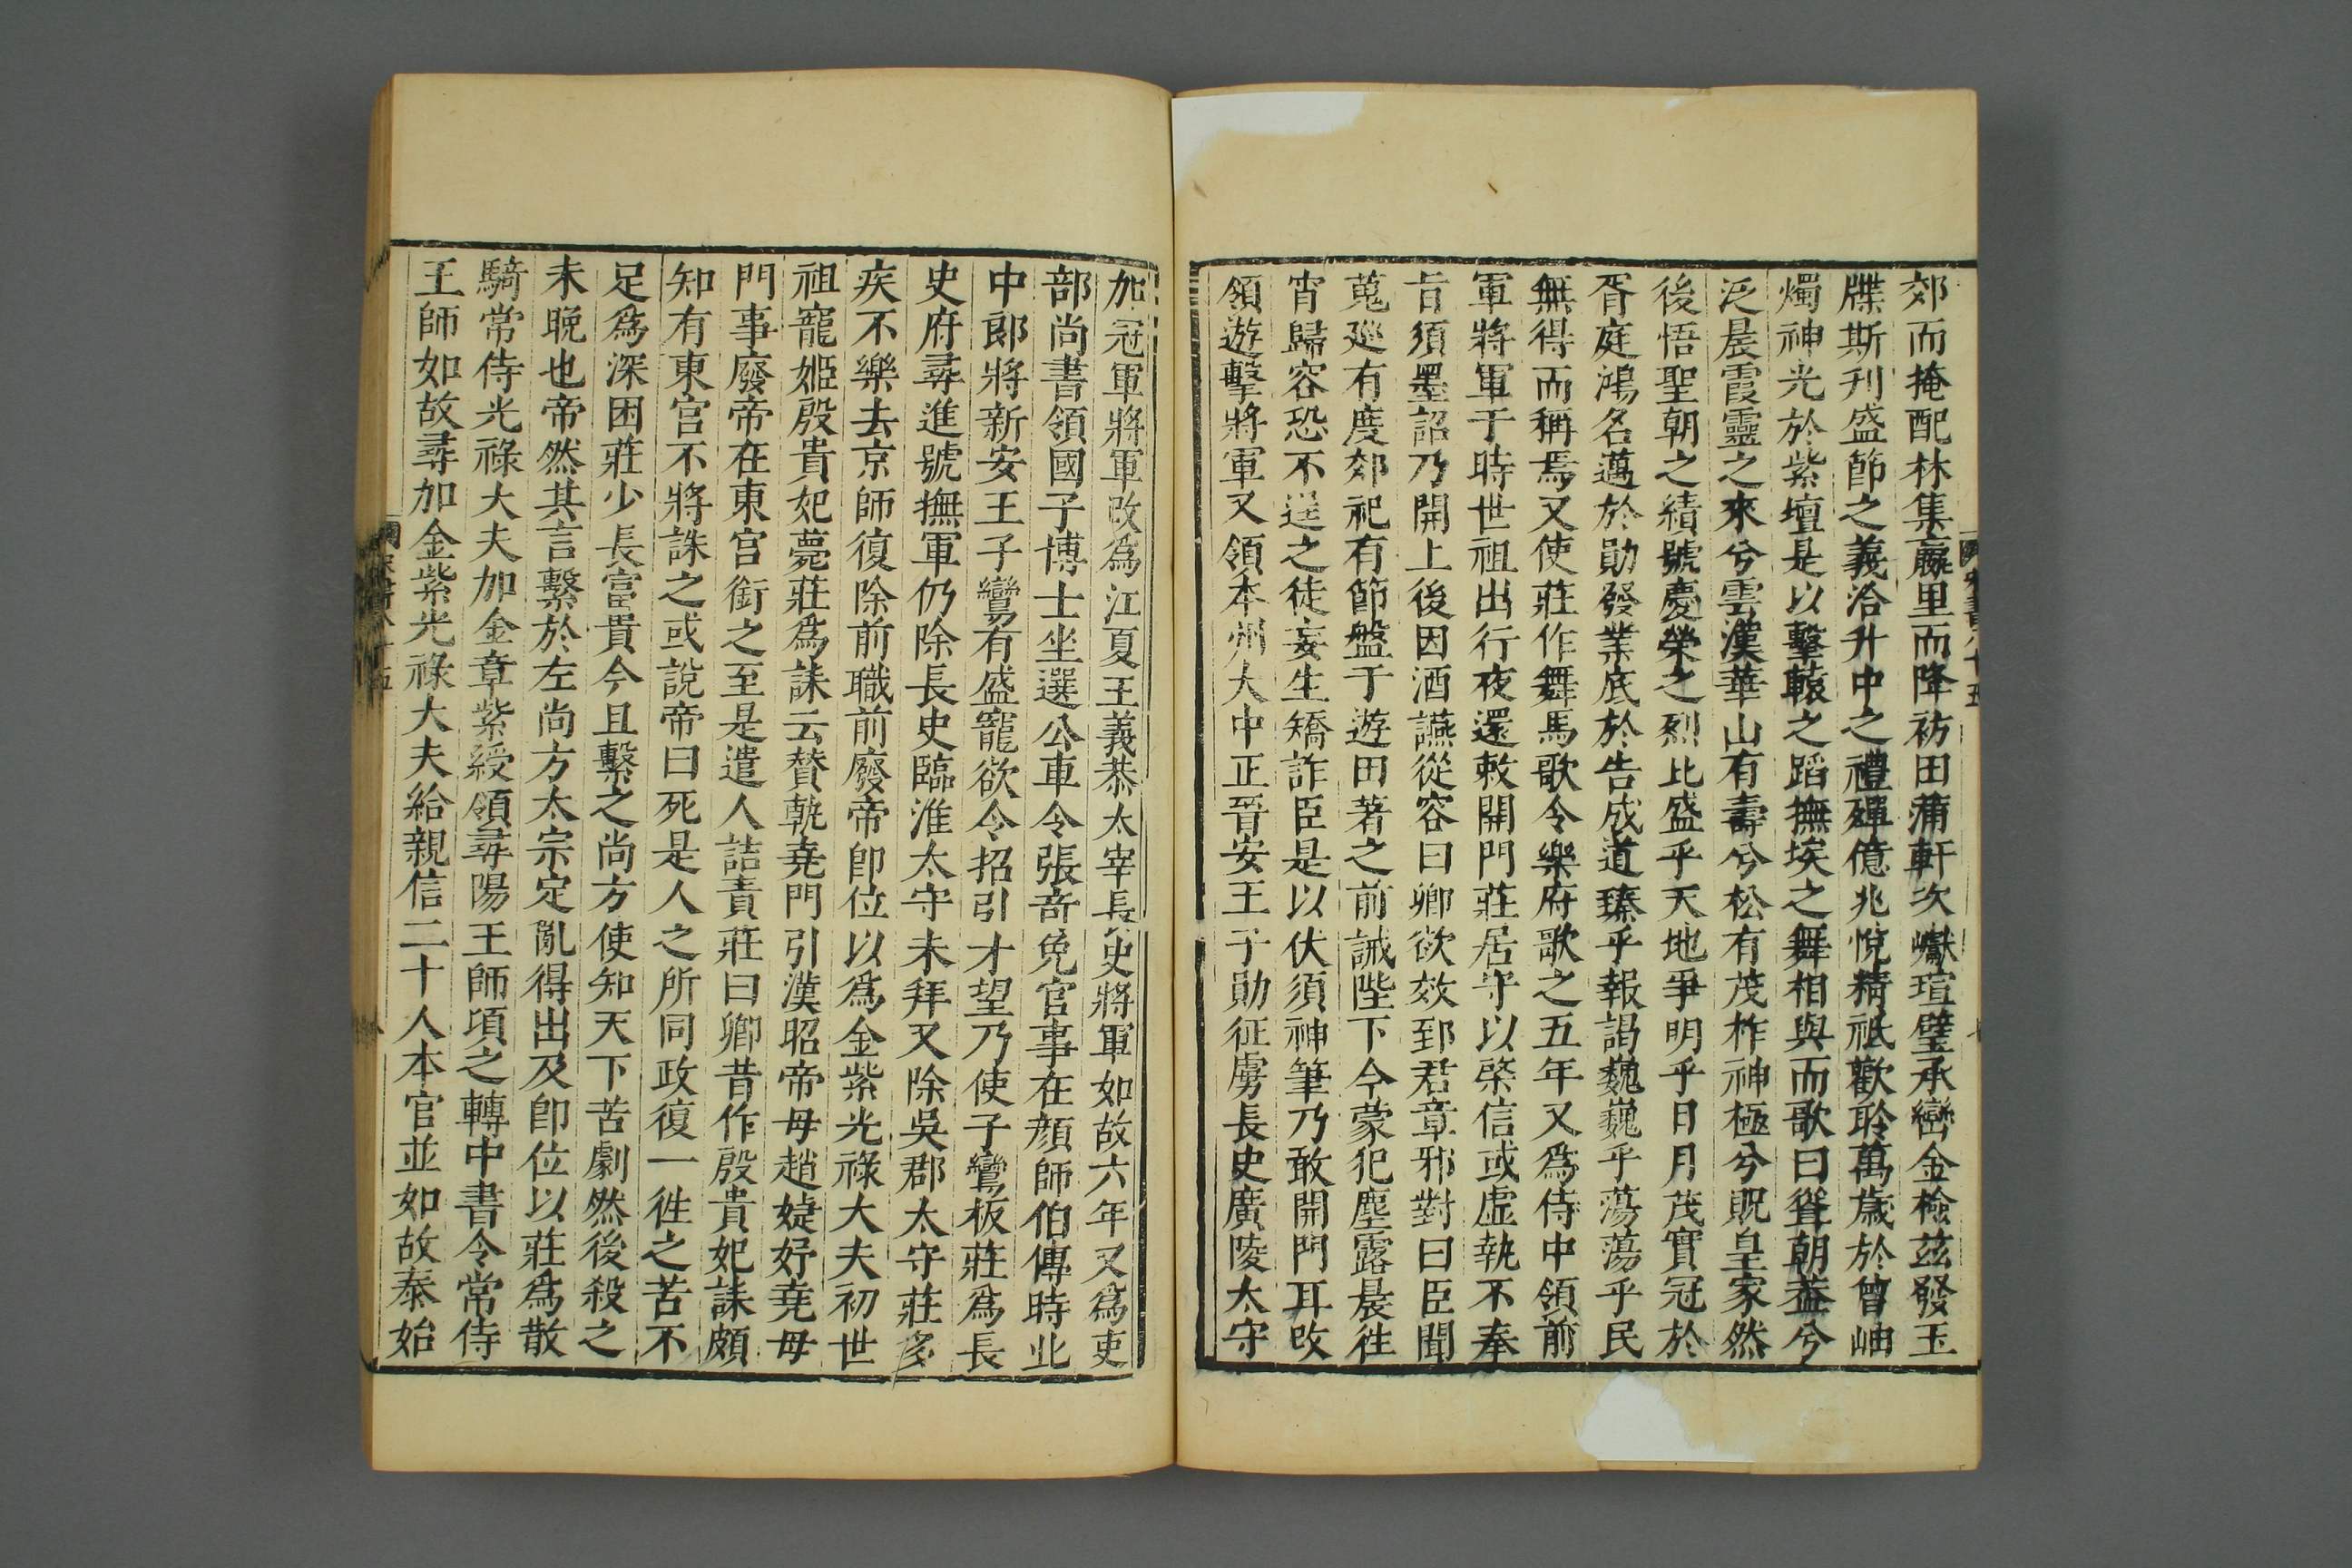 郊而掩配林集嬴里而降祊田蒲軒次巘瑄璧承巒金檢茲發玉
牒斯刋盛節之義洽升中之禮殫億兆悅精祇歡聆萬歲於曾岫
燭神光於紫壇是以擊轅之蹈撫埃之舞相與而歌曰聳朝葢兮
泛晨霞靈之來兮雲漢華山有壽兮松有茂柞神極兮貺皇家然
後悟聖朝之績號慶榮之烈比盛乎天地爭明乎日月茂實冠於
胥庭鴻名邁於勛發業底於告成道臻乎報謁巍巍乎蕩蕩乎民
無得而稱焉又使莊作舞馬歌令樂府歌之五年又爲侍中領前
軍將軍于時世祖出行夜還敕開門莊居守以棨信或虛執不奉
旨須墨詔乃開上後因酒讌從容曰卿欲效郅君章邪對曰臣聞
蒐廵有度郊祀有節盤于遊田著之前誡陛下今蒙犯塵露晨徃
宵歸容恐不逞之徒妄生矯詐臣是以伏須神筆乃敢開門耳改
領遊擊將軍又領本州大中正晉安王子勛征虜長史廣陵太守
加冠軍將軍改爲江夏王義恭太宰長史將軍如故六年又爲吏
部尚書領國子博士坐選公車令張奇免官事在顔師伯傳時北
中郎將新安王子鸞有盛寵欲令招引才望乃使子鸞板莊爲長
史府尋進號撫軍仍除長史臨淮太守未拜又除吳郡太守莊多
疾不樂去京師復除前職前廢帝卽位以爲金紫光祿大夫初世
祖寵姬殷貴妃薨莊爲誄云贊軌堯門引漢昭帝母趙婕妤堯母
門事廢帝在東宮銜之至是遣人詰責莊曰卿昔作殷貴妃誄頗
知有東宮不將誅之或說帝曰死是人之所同政復一徃之苦不
足爲深困莊少長富貴今且繫之尚方使知天下苦劇然後殺之
未晚也帝然其言繫於左尚方太宗定亂得出及卽位以莊爲散
騎常侍光祿大夫加金章紫綬領尋陽王師頃之轉中書令常侍
王師如故尋加金紫光祿大夫給親信二十人本官並如故泰始